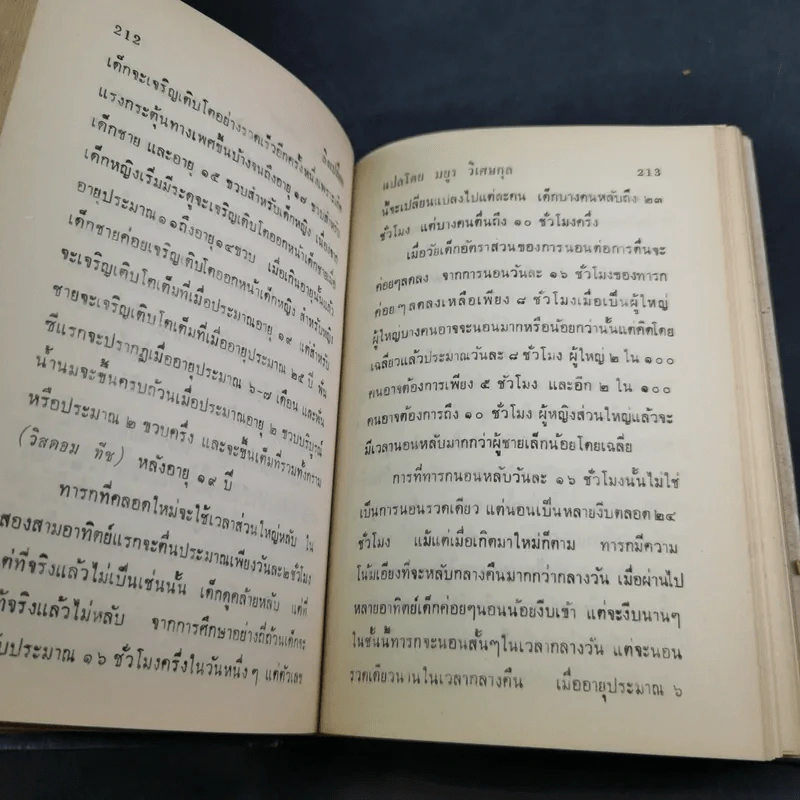 212
เด็กจะเจริญเติบโตอย่างรวดเร็วอีกครั้งหนึ่งเพราะเกิด
แรงกระตุ้นทางเพศขึ้นบ้างจนถึงอายุ ๑๗ ขวบสำหรับ
เด็กชาย และอายุ ๑๕ ขวบสำหรับเด็กหญิง เนื่องจาก
เด็กหญิงเริ่มมีระดูจะเจริญเติบโตออกหน้าเด็กชายเมื่อ
อายุประมาณ๑๑ถึงอายุ๑๔ขวบ เมื่อเกินอายุนั้นแล้ว
เด็กชายค่อยเจริญเติบโตออกหน้าเด็กหญิง สำหรับหญิง
จะเจริญเติบโตเต็มที่เมื่อประมาณอายุ ๑๙ แต่สำหรับ
ชายจะเจริญเติบโตเต็มที่เมื่ออายุประมาณ ๒๕ ปี ฟัน
ซี่แรกจะปรากฏเมื่ออายุประมาณ ๖-๗ เดือน และฟัน
น้ำนมจะขึ้นครบถ้วนเมื่อประมาณอายุ ๒ ขวบบริบูรณ์
หรือประมาณ ๒ ขวบครึ่ง และจะขึ้นเต็มที่รวมทั้งกราม
(วิสดอม ทีซ) หลังอายุ ๑๙ ปี
ทารกที่คลอดใหม่จะใช้เวลาส่วนใหญ่หลับ ใน
สองสามอาทิตย์แรกจะตื่นประมาณเพียงวันละ๒ชั่วโมง
แต่ที่จริงแล้วไม่เป็นเช่นนั้น เด็กดูคล้ายหลับ แต่ที่
แท้จริงแล้วไม่หลับ จากการศึกษาอย่างถี่ถ้วนเด็กจะ
หลับประมาณ ๑๖ ชั่วโมงครึ่งในวันหนึ่งๆ แต่ตัวเลข
แปลโดย มยูร วิเศษกุล 213
นี้จะเปลี่ยนแปลงไปแต่ละคน เด็กบางคนหลับถึง ๒๓
ชั่วโมง แต่บางคนตื่นถึง ๑๐ ชั่วโมงครึ่ง
เมื่อวัยเด็กอัตราส่วนของการนอนต่อการตื่นจะ
ค่อยๆลดลง จากการนอนวันละ ๑๖ ชั่วโมงของทารก
ค่อยๆลดลงเหลือเพียง ๘ ชั่วโมงเมื่อเป็นผู้ใหญ่
ผู้ใหญ่บางคนอาจจะนอนมากหรือน้อยกว่านั้นแต่คิดโดย
เฉลี่ยวแล้วประมาณวันละ ๘ ชั่วโมง ผู้ใหญ่ ๒ ใน ๑๐๐
คนอาจต้องการเพียง ๕ ชั่วโมง และอีก ๒ ใน ๑๐๐
คนอาจต้องการถึง ๑๐ ชั่วโมง ผู้หญิงส่วนใหญ่แล้วจะ
มีเวลานอนหลับมากกว่าผู้ชายเล็กน้อยโดยเฉลี่ย
การที่ทารกนอนหลับวันละ ๑๖ ชั่วโมงนั้นไม่ใช่
เป็นการนอนรวดเดียว แต่นอนเป็นหลายงีบตลอด๒๔
ชั่วโมง แม้แต่เมื่อเกิดมาใหม่ก็ตาม ทารกมีความ
โน้มเอียงที่จะหลับกลางคืนมากกว่ากลางวัน เมื่อผ่านไป
หลายอาทิตย์เด็กค่อยๆนอนน้อยงีบเข้า แต่จะงีบนานๆ
ในชั้นนี้ทารกจะนอนสั้นๆในเวลากลางวัน แต่จะนอน
รวดเดียวนานในเวลากลางคืน เมื่ออายุประมาณ ๖